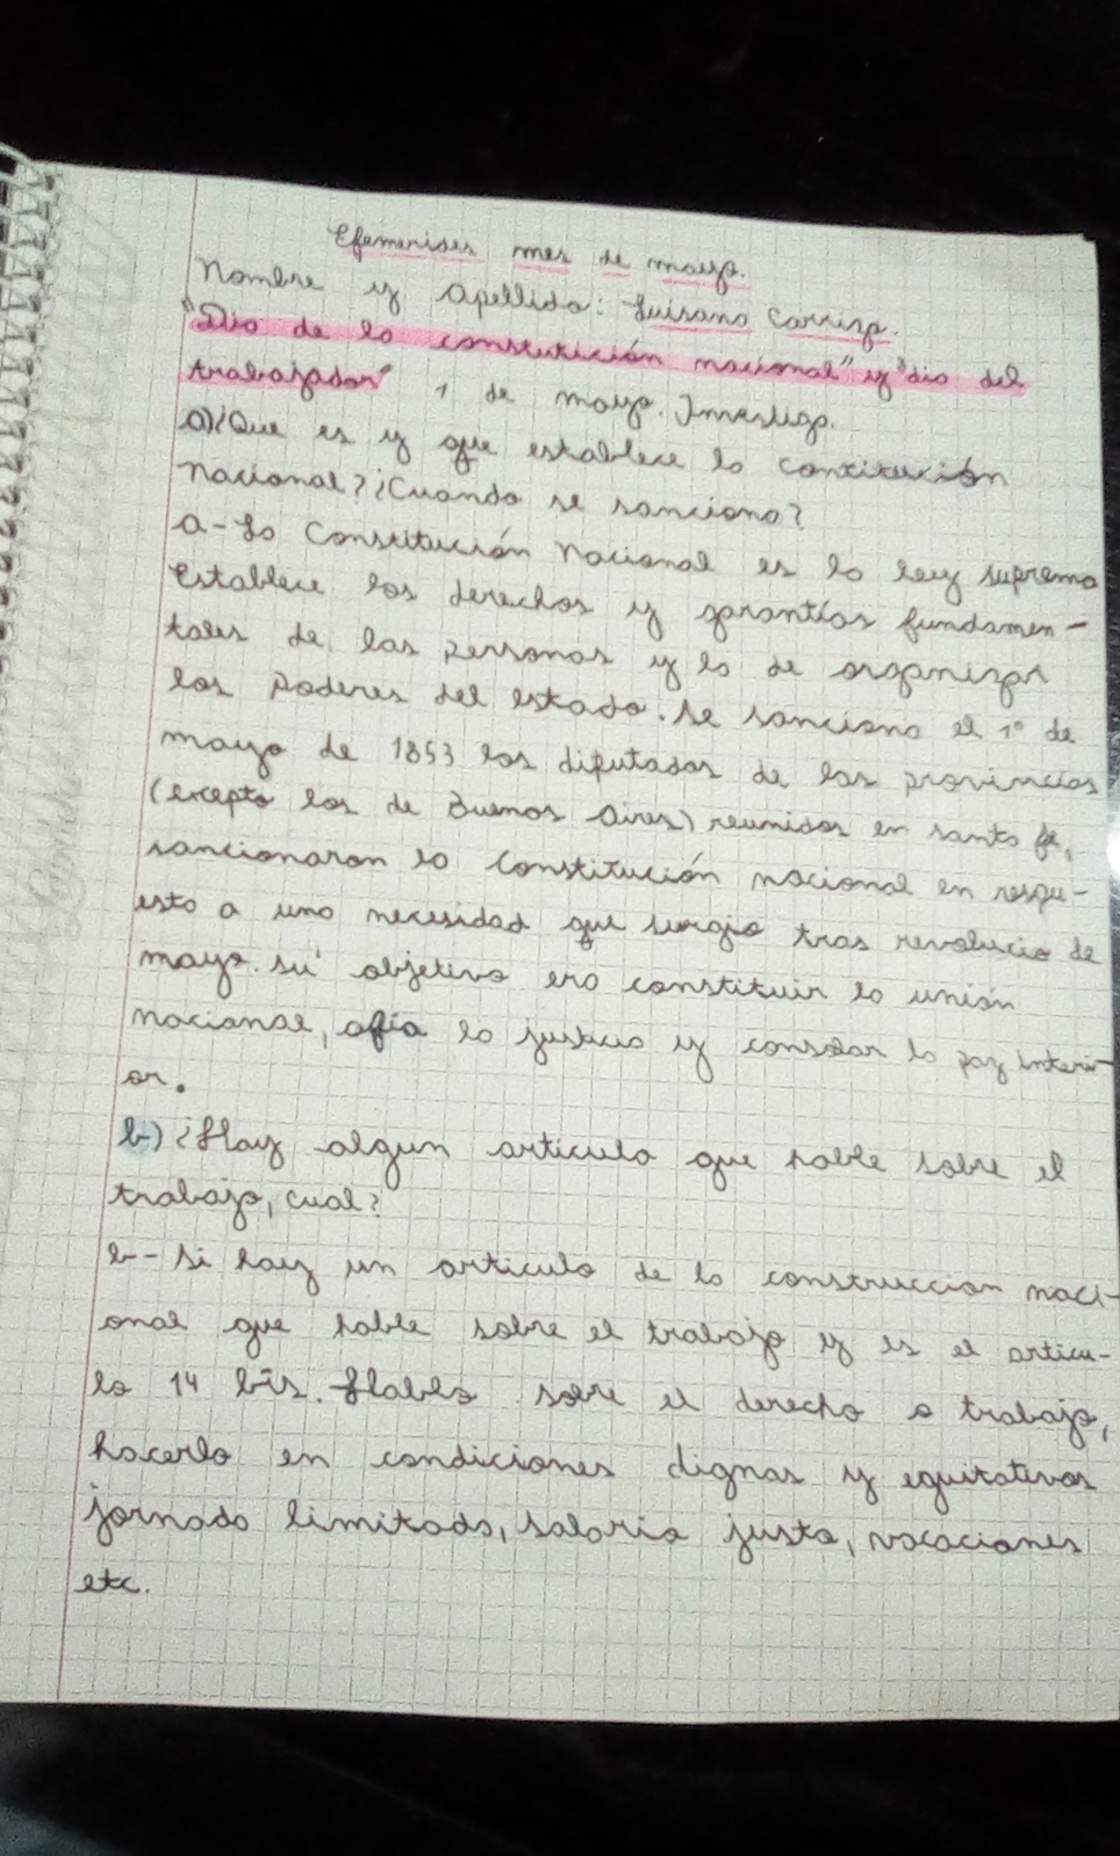 Efemerides mes de mayo.
Nombre y Apellido: Luisana Carrizo.
"Dia de la constutición nacional" y "dia del
trabajador" 1 de mayo. Investigo.
a)¿Que es y que establece la contitución
Nacional? ¿Cuando se sanciono?
a-La Constitución Nacional es la ley suprema
Establece los derechos y garantías fundamen-
tales de las personas y la de organizar
los poderes del estado. se sanciono el 1° de
mayo de 1853 los diputados de las provincias
(excepto los de Buenos Aires) reunidos en santa fe,
sancionaron la Constitución nacional en respu-
esta a una necesidad que surgio tras revolucio de
mayo. su objetivo era constituir la unión
nacional, la justicia y consolar la paz interi-
or.
b) ¿Hay algun articulo que hable sobre el
trabajo, cual?
b- Si hay un articulo de la construccion naci-
onal que hable sobre el trabajo y es el articu-
lo 14 bis. Habla sobre el derecho a trabajo,
hacerlo en condiciones dignas y equitativas
jornada limitada, salario justo, vacaciones
etc.